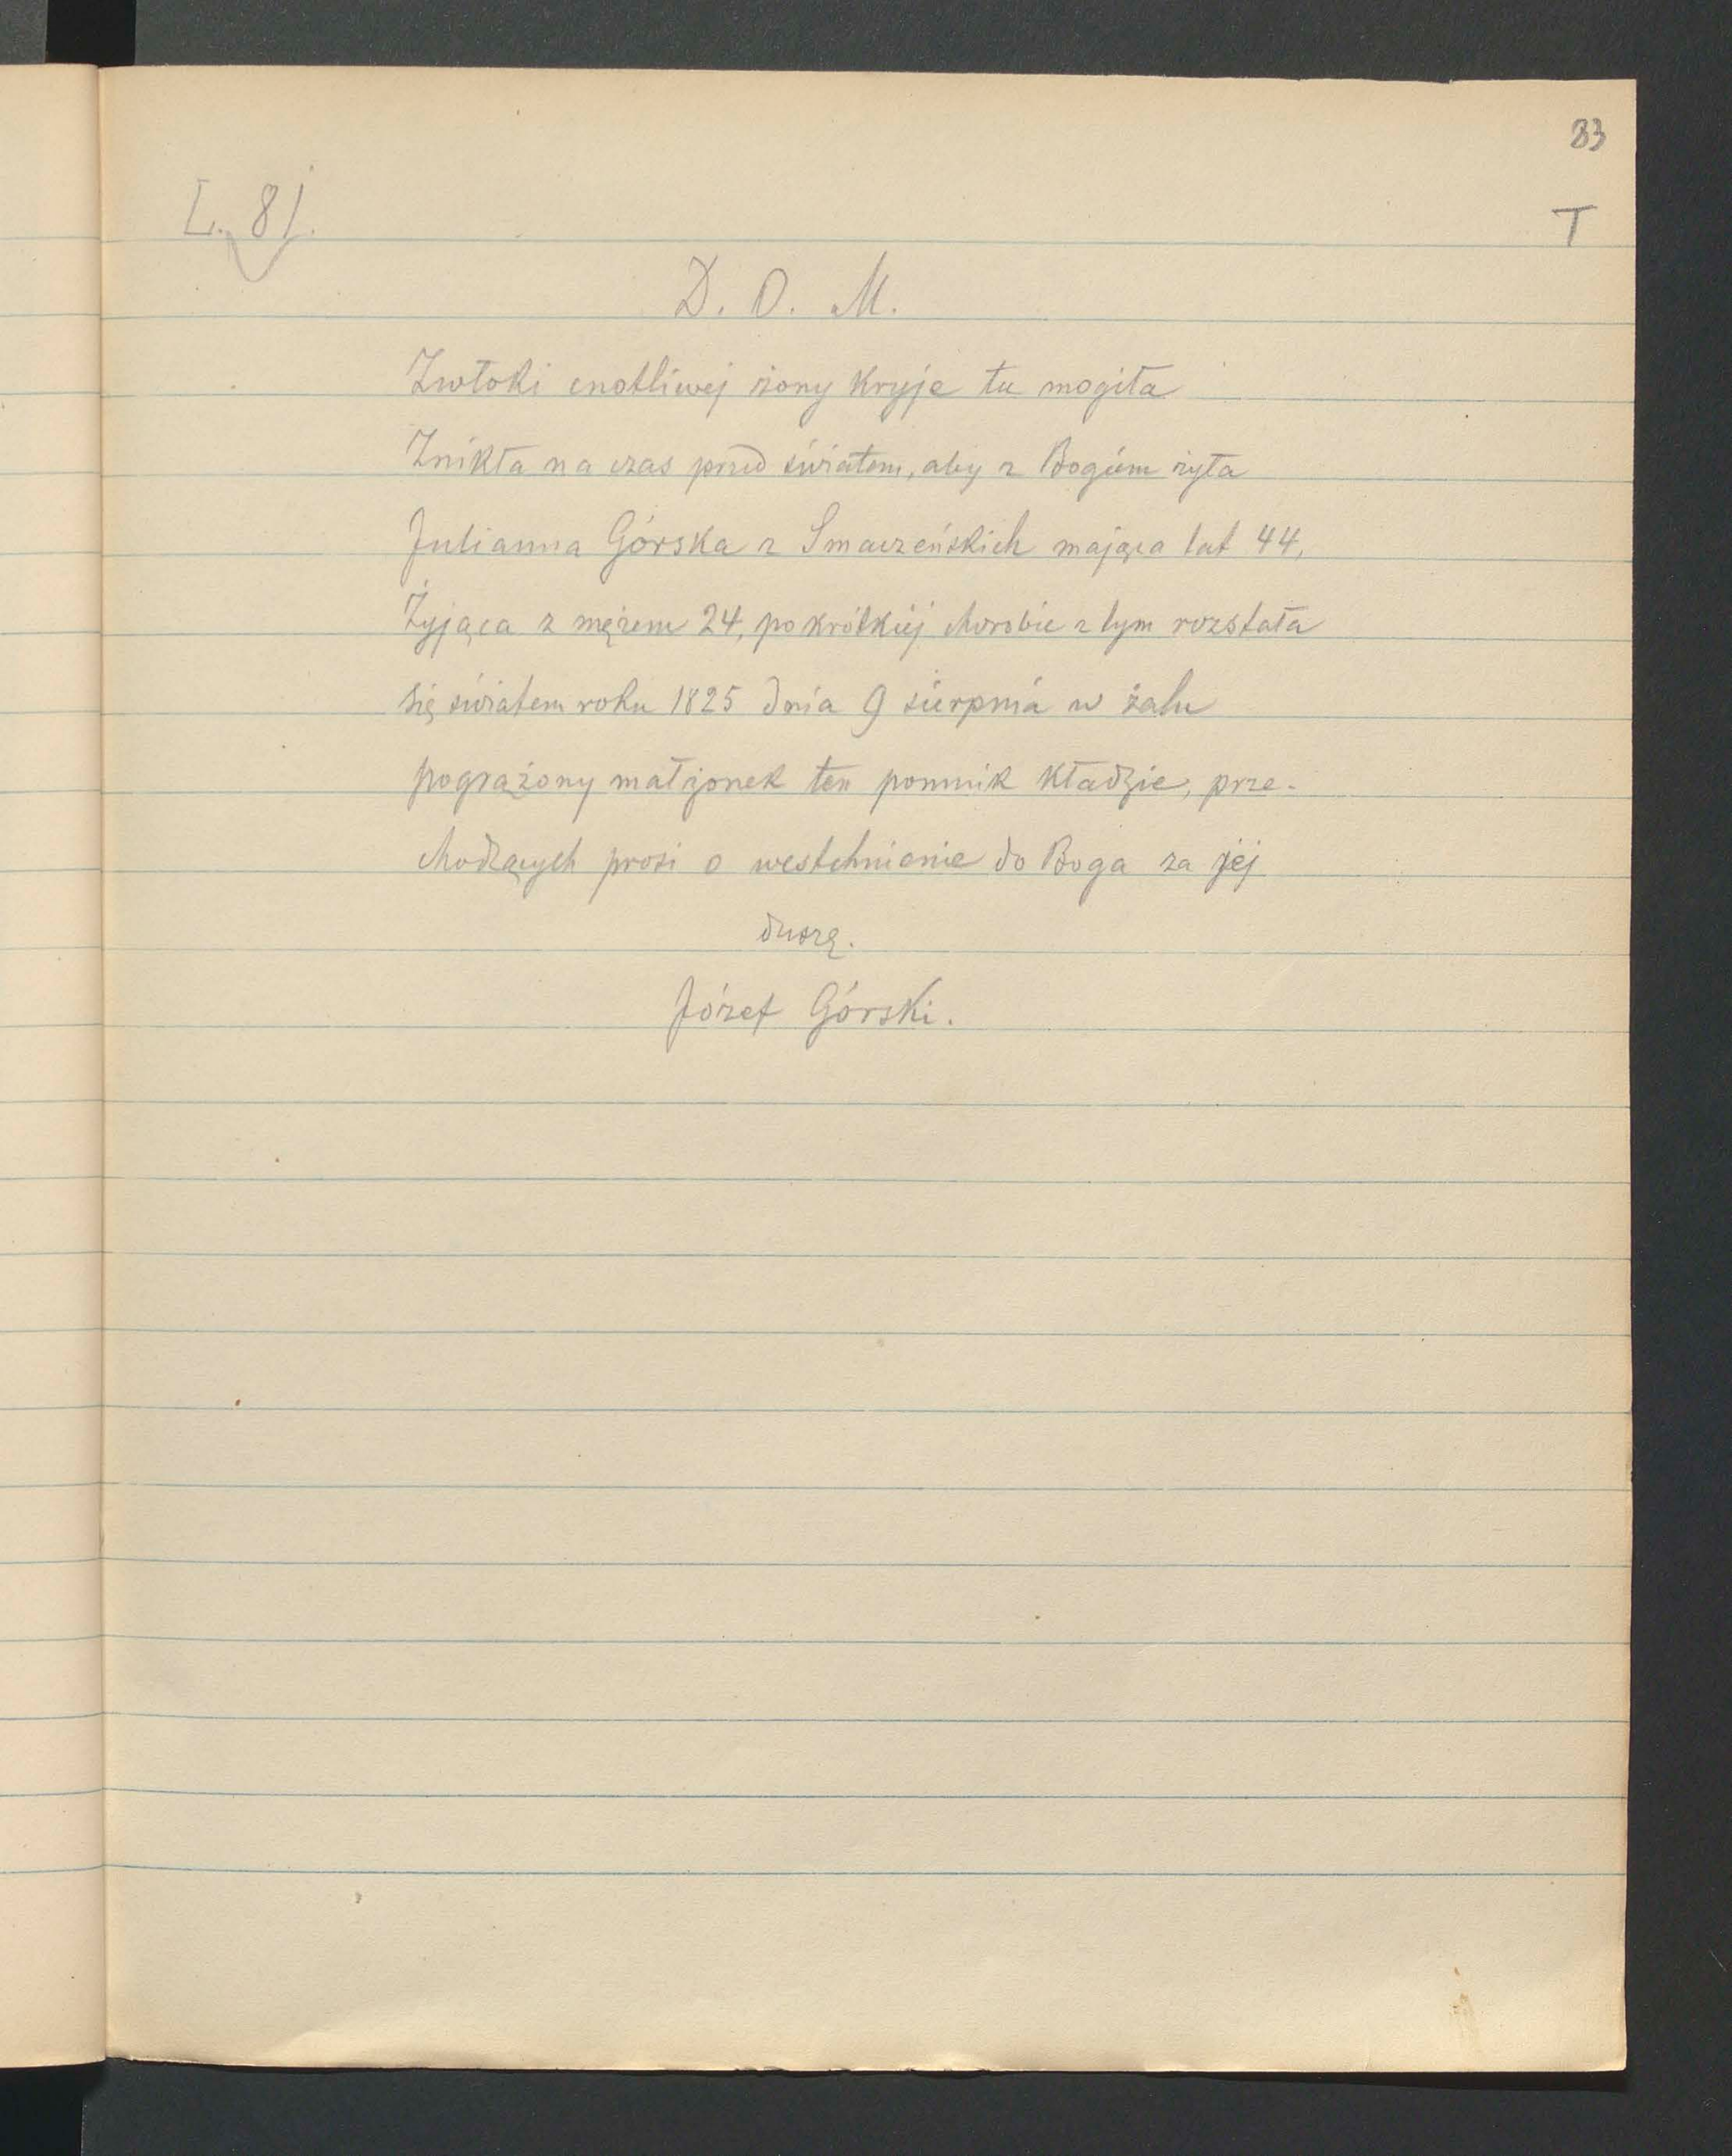 83
L. 81.
T
D. O. M.
Zwłoki cnotliwej żony kryje tu mogiła
Znikła na czas przed światem, aby z Bogiem żyła
Julianna Górska z Smaczeńskich mająca lat 44,
Żyjąca z mężem 24, po krótkiej chorobie z tym rozstała
się światem roku 1825 dnia 9 sierpnia w żalu
pogrążony małżonek ten pomnik kładzie, prze-
chodzących prosi o westchnienie do Boga za jej
duszę.
Józef Górski.